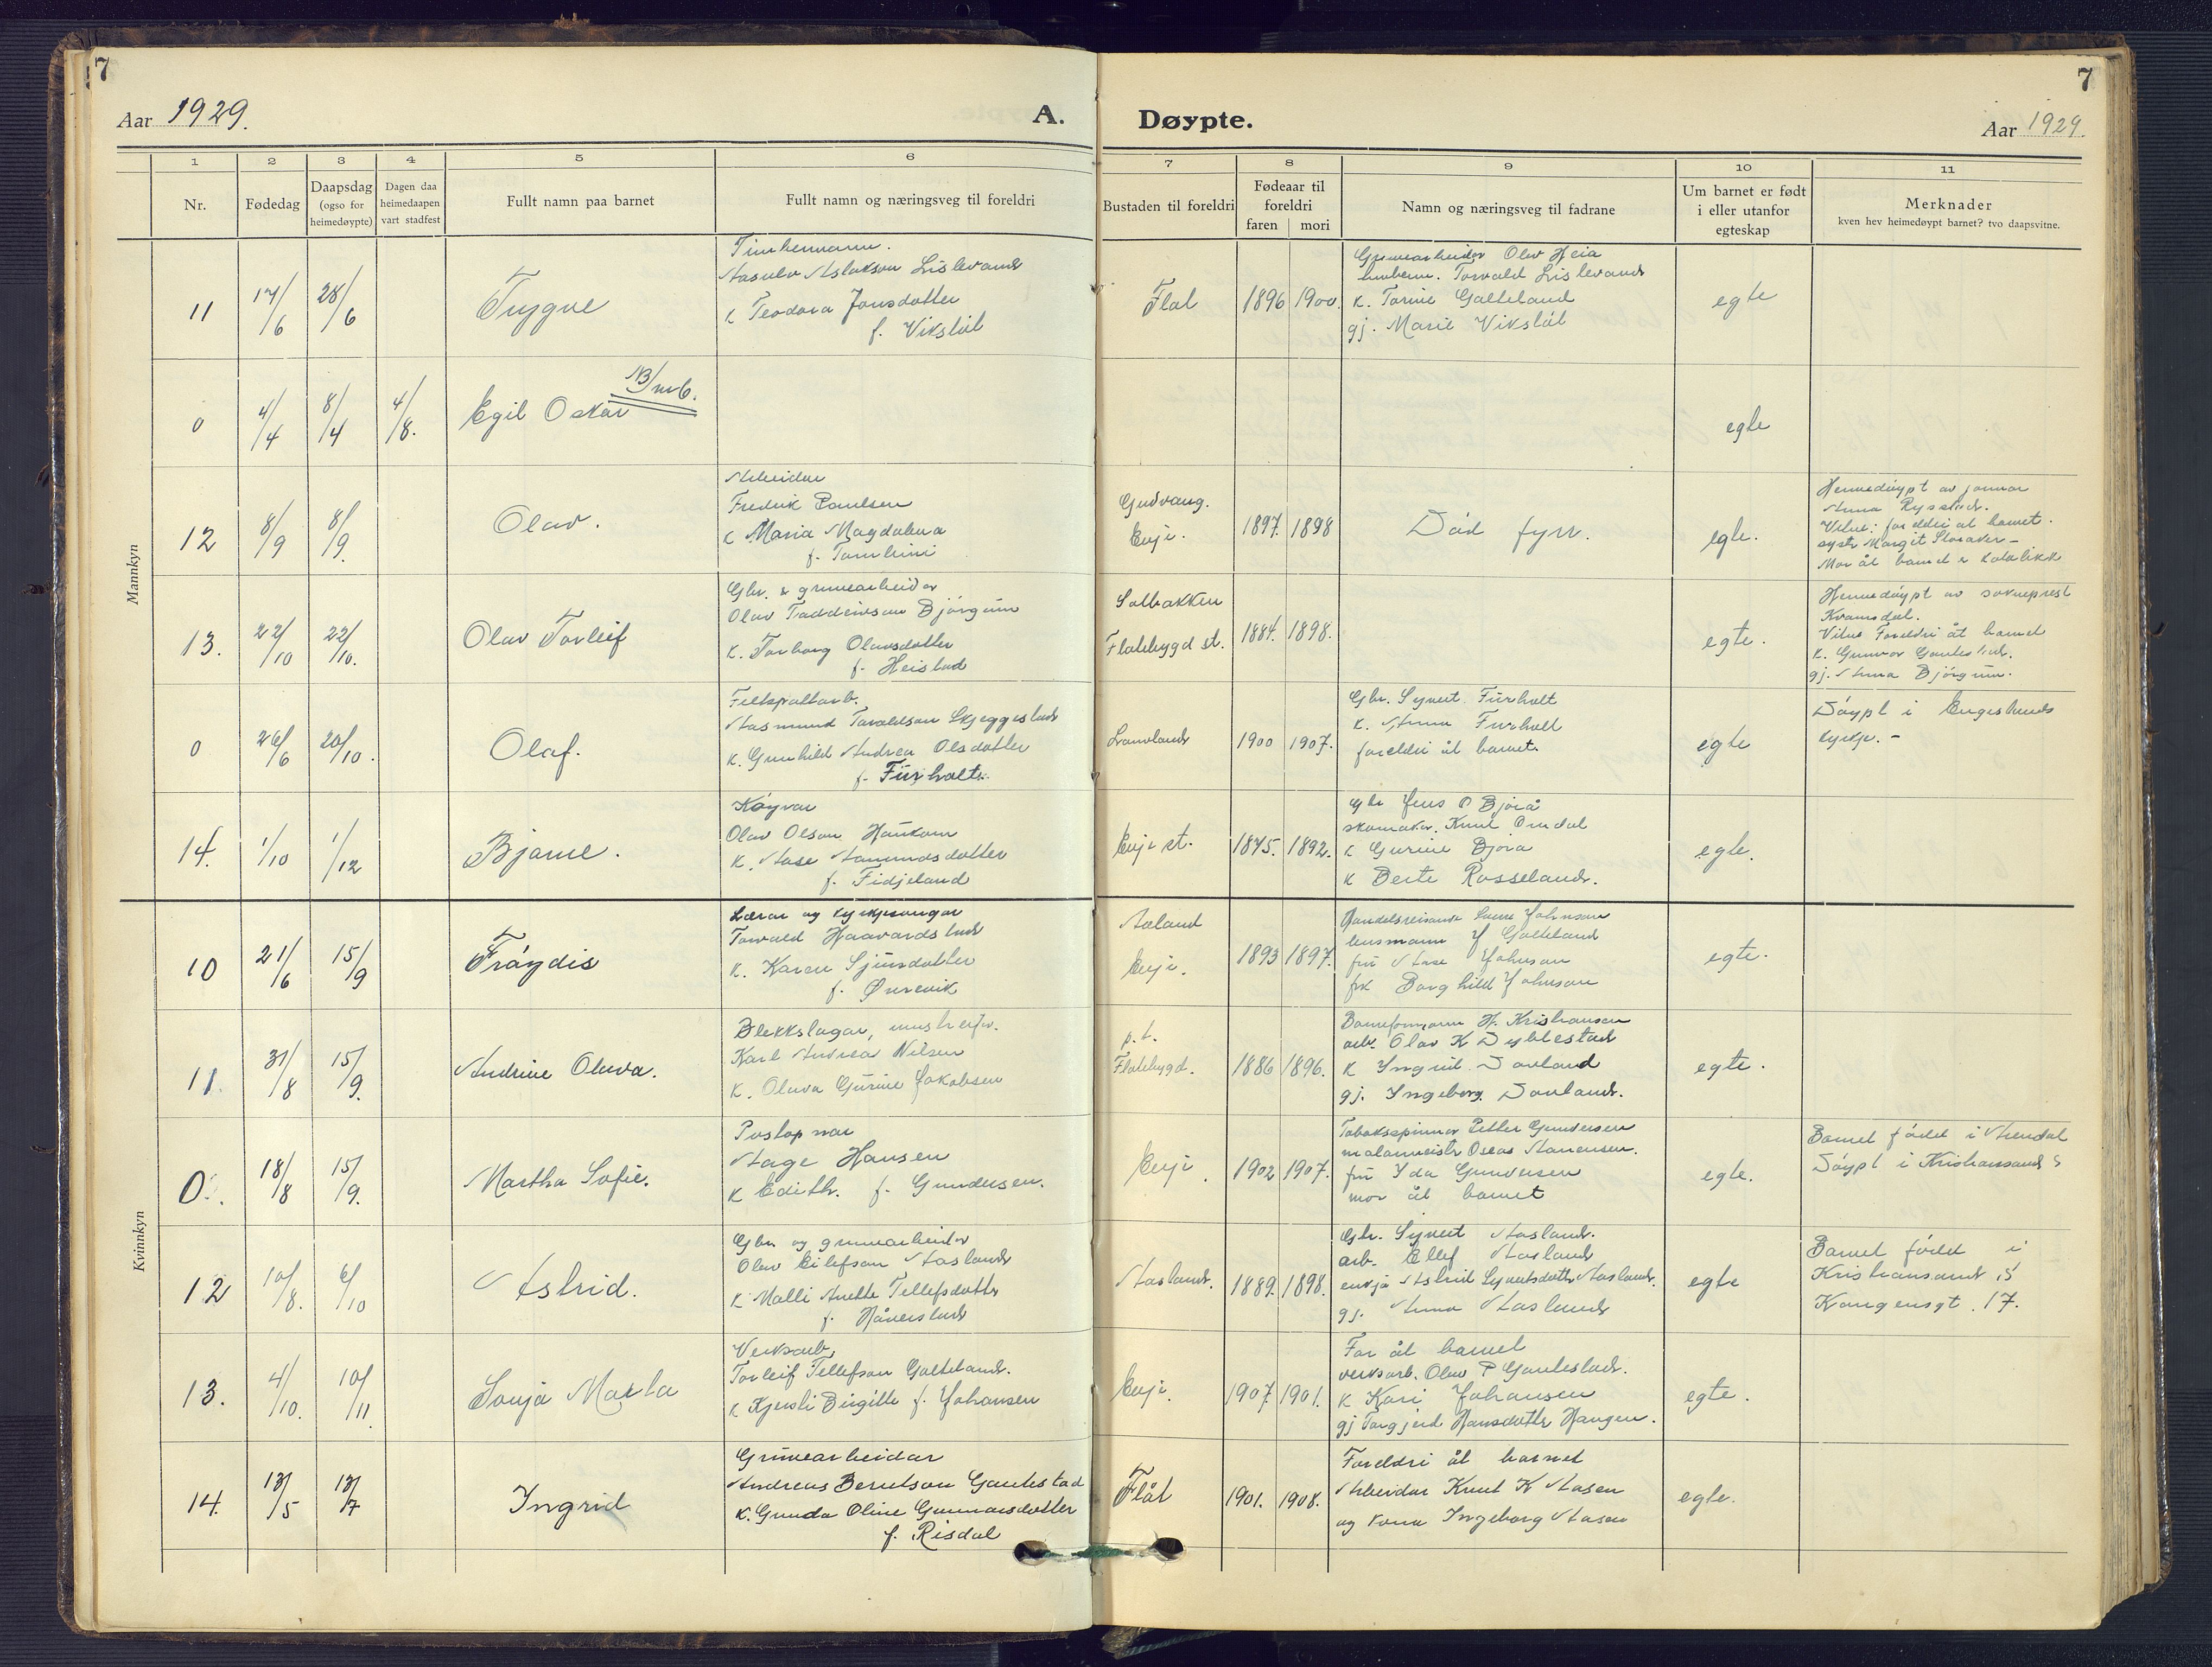 7
Aar 1929.
A.
Døypte.
7
Aar 1929.
1 2 3 4 5 6 7 8 9 10 11
Nr.
Fødedag
Daapsdag (ogso for heimedøypte)
Dagen daa heimedaapen vart stadfest
Fullt namn paa barnet
Fullt namn og næringsveg til foreldri
Bustaden til foreldri
Fødeaar til foreldri
faren mori
Namn og næringsveg til fadrane
Um barnet er født i eller utanfor egteskap
Merknader
kven hev heimedøypt barnet? tvo daapsvitne.
Mannkyn
11 17/6 28/6 Trygve
Aslakson Lislevand
k Teodora Jonsdotter
f. Vikstøl
Flat 1896 1900
Gruvearbeider Olav Heia
Torvald Lislevand
k. Torine Galteland
gj. Marie Vikstøl
egte
0 4/4 8/4 4/8. Egil Oskar
egte
12 8/9 8/9. Olav.
Arbeidar
Fredrik Paulsen
k Maria Magdalena
f.
Evje. 1897. 1898
Død fyrr.
egte.
Heimedøypt av jormor
Anna
Vitne: foreldri åt barnet.
syster Margit Storaker –
Mor åt barnet er katolikk
13. 22/10 22/10. Olav Torleif
Gbr. & gruvearbeidar
Olav Taddeivson Bjørgum
k. Torborg Olavsdotter
f. Heistad
Solbakken
Flatebygd st.
1884. 1898.
egte.
Heimedøypt av sokneprest
Kvamsdal.
Vitne Foreldri åt barnet
k. Gunvor Gautestad.
gj. Anna Bjørgum.
0 26/6 20/10. Olaf.
Feltspatarb.
Aasmund Taraldson Skjeggestad
k. Gunhild Andrea Olsdotter
f. Furholt.
1900 1907.
Gbr. Syvert Furholt
k. Anna Furholt
foreldri åt barnet.
egte
Døypt i Engeslands
kyrkje. –
14. 1/10 1/12 Bjarne.
Køyrar
Olav Olson Haukom
k. Aase Aamundsdotter
f. Fidjeland
Evje st. 1875. 1892.
Gbr Jens O Bjorå
skomakar. Knut Omdal
k Gurine Bjorå
k Berte Rosseland.
egte.
Kvinnkyn
10 21/6 15/9 Frøydis
Lærar og kyrkjesongar
Torvald Haavardstad
k. Karen Sjursdotter
f. Ørevik
Aaland
Evje. 1893 1897.
Handelsreisande Johnson
lensmann J Galteland
fru Aase Johnson
frk Borghild Johnson
egte.
11 31/8 15/9 Andrine Olava.
Blekkslagar,
Karl Andreas Nilsen
k. Olava Gurine Jakobsen
p.t.
Flatebygd. 1886 1896.
Baneformann H. Kristiansen
arb. Olav K Dyblestad
k Yngvil Dovland
gj. Yngeborg Dovland.
egte.
0. 18/8 15/9. Martha Sofie.
Postopnar
Aage Hansen
k Edith. f. Gundersen.
Evje. 1902 1907.
Tobakspinnar Petter Gundersen
malarmeistr Oscar Aanensen.
fru Yda Gundersen
mor åt barnet
egte.
Barnet fødd i Arendal
Døypt i Kristiansand S
12 10/8. 6/10 Astrid.
Gbr og gruvearbeidar
Olav Eilefson Aasland
k Malli Anette Tellefsdotter
f. Håverstad
Aasland. 1889. 1898.
Gbr. Syvert Aasland.
arb. Ellef Aasland
enkja Astrid Syvertsdotter Aasland.
gj. Anna Aasland
egte
Barnet fødd i
Kristiansand S
Kongensgt. 17.
13. 4/10. 10/11 Sonja Marta
Verksarb.
Torleif Tellefson Galteland.
k Kjersti Birgitte f. Johansen
Evje. 1907. 1901.
Far åt barnet
verksarb. Olav P Gautestad.
k Kari Johansen
gj Torgjerd Hansdotter Haugen.
egte.
14. 13/5 13/7 Ingrid
Gruvearbeidar
Andreas Berntson Gautestad
k. Gunda Oline Gunnarsdotter
f. Risdal
Flåt 1901. 1908.
Foreldri åt barnet
Arbeidar Knut K Aasen
og kona Ingeborg Aasen
egte.